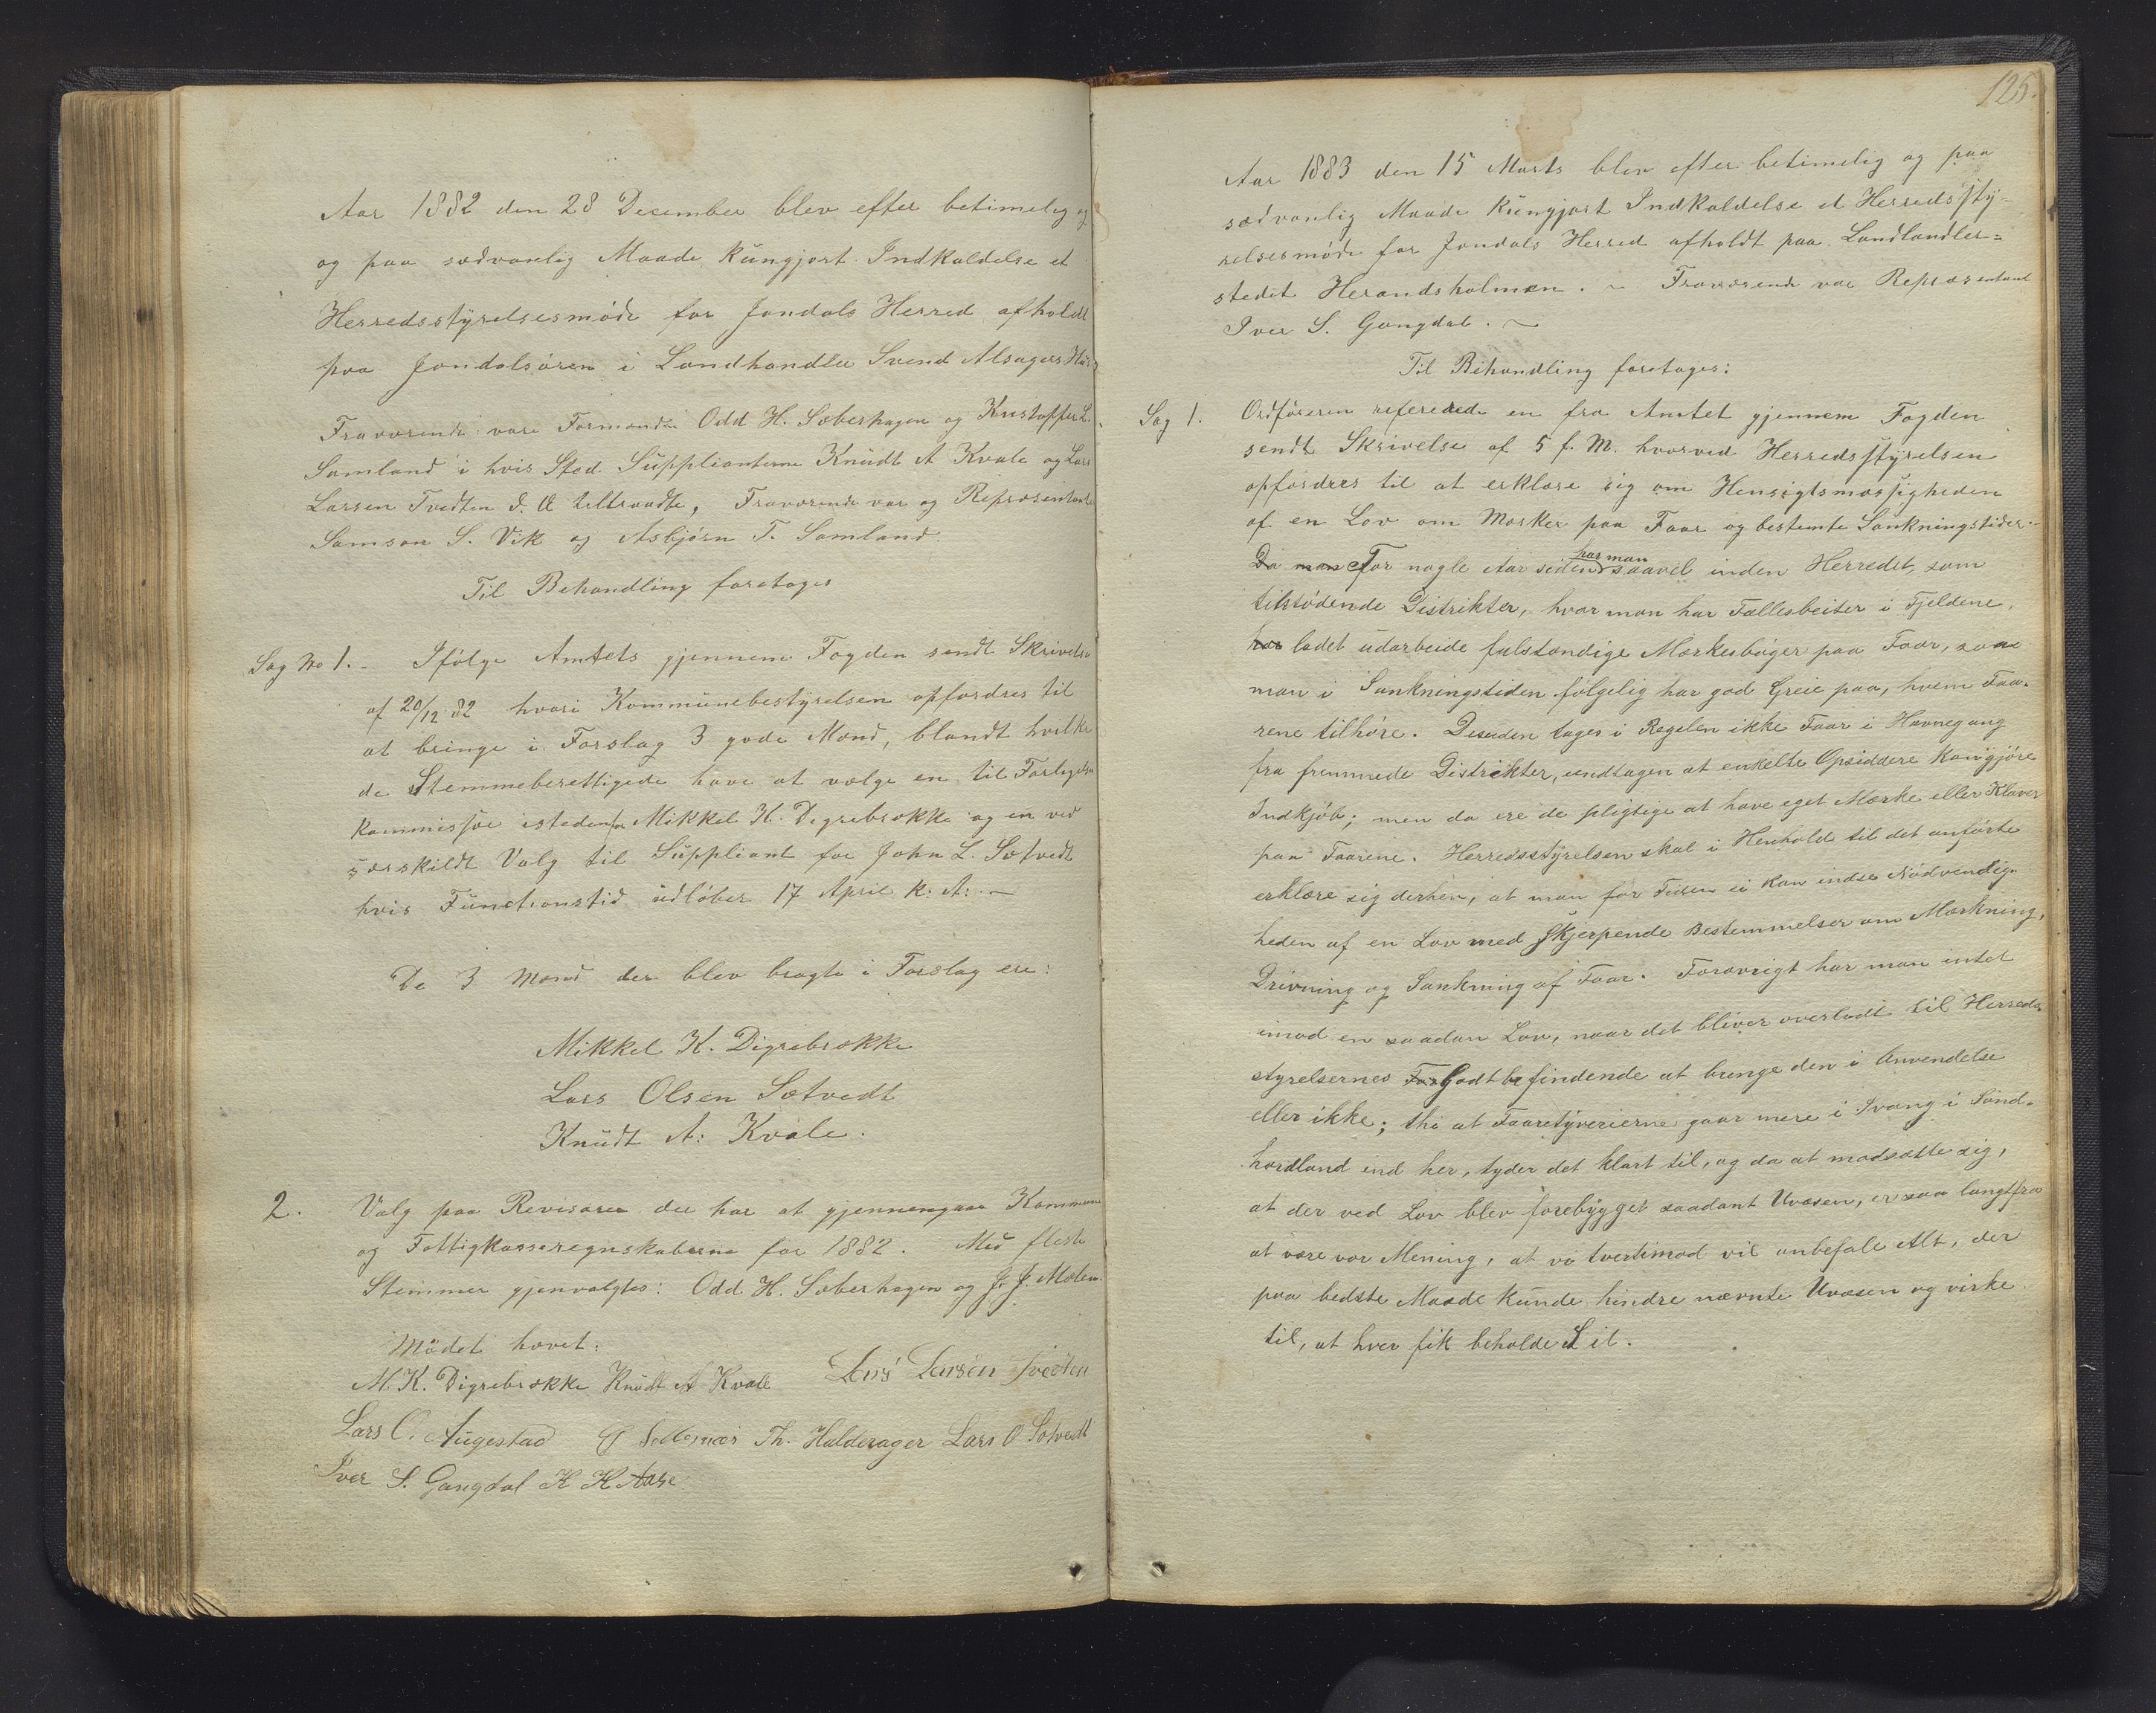 Aar 1882 den 28 December blev efter betimelig og
og paa sædvanlig Maade kungjort Indkaldelse et
Herredsstyrelsesmöde for Jondals Herred afholdt
paa Jondalsören i Landhandler Svend Alsagers Hus
Fraværende vare Formænd Odd H. Sæberhagen og Kristoffer L.
Samland i hvis Sted Supplianterne Knudt A Kvale og Lars
Larsen Tvedten tiltraadte, Fraværende var og Repræsentant
Samson S. Vik og Asbjörn T. Samland.
Til Behandling foretages
Sag No 1. - Ifölge Amtets gjennem Fogden sendt Skrivelse
af 20/12 82 hvori Kommunebestyrelsen opfordres til
at bringe i Forslag 3 gode Mænd, blandt hvilke
de Stemmeberettigede have at vælge en til Forligelses
kommissær istedenfor Mikkel K. Digrebrække og en ved
særskildt Valg til Suppliant for John L. Sætvedt
hvis Functionstid udlöber 17 April k. A. -
De 3 Mænd der blev bragte i Forslag ere:
Mikkel K. Digrebrække
Lars Olsen Sætvedt
Knudt A: Kvale.
2. Valg paa Revisorer der har at gjennemgaae Kommune
og Fattigkasseregnskaberne for 1882. Med fleste
Stemmer gjenvalgtes: Odd H. Sæberhagen og J. J. Mælen.
Mödet hævet:
M. K. Digrebrække Knudt A Kvale Lars Larsen Tvedten
Lars O. Augestad Th. Halderager Lars O Sætvedt
Iver S. Gangdal K K Aase
125.
Aar 1883 den 15 Marts blev efter betimelig og paa
sædvanlig Maade kungjort Indkaldelse et Herredssty-
relsesmöde for Jondals Herred afholdt paa Landlandler=
stedet Herandsholmen. - Fraværende var Repræsentant
Iver S. Gangdal. -
Til Behandling foretages:
Sag 1. Ordföreren refererede en fra Amtet gjennem Fogden
sendt Skrivelse af 5 f. M. hvorved Herredsstyrelsen
opfordres til at erklære sig om Hensigtsmæssigheden
af en Lov om Mærker paa Faar og bestemte Sankningstider.
Da man For nogle Aar siden har man saavel inden Herredet, som
tilstödende Distrikter, hvor man har Fællesbeiter i Fjeldene,
har ladet udarbeide fulstændige Mærkesböger paa Faar, saa
man i Sankningstiden fölgelig har god Greie paa, hvem Faa-
rene tilhöre. Desuden tages i Regelen ikke Faar i Havnegang
fra fremmede Distrikter, undtagen at enkelte Opsiddere kan gjöre
Indkjöb; men da ere de pligtige at have eget Mærke eller Klaver
paa Faarene. Herredsstyrelsen skal i Henhold til det anförte
erklære sig derhen, at man for Tiden ei kan indse Nödvendig-
heden af en Lov med skjerpende Bestemmelser om Mærkning,
Drivning og Sankning af Faar. Forövrigt har man intet
imod en saadan Lov, naar det bliver overladt til Herreds-
styrelsernes For Godtbefindende at bringe den i Anvendelse
eller ikke; thi at Faaretyverierne gaar mere i Svang i Sönd-
hordland end her, tyder det klart til, og da at modsætte sig,
at der ved Lov blev forebygget saadant Uvæsen, er saa langtfra
at være vor Mening, at vi tvertimod vil anbefale Alt, der
paa bedste Maade kunde hindre nævnte Uvæsen og virke
til, at hver fik beholde Sit.